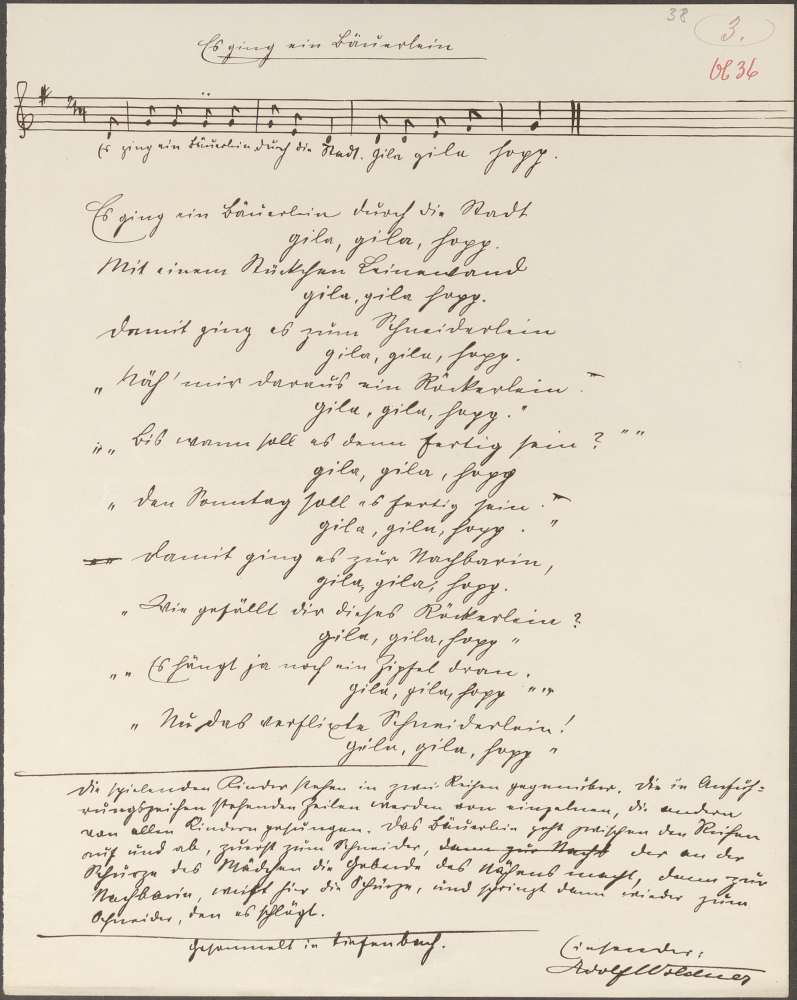 38
3.
Es ging ein Bäuerlein
VC 36
2/4
Es ging ein Bäuerlein durch die Stadt. Gila gila hopp.
Es ging ein Bäuerlein durch die Stadt
gila, gila, hopp.
Mit einem Stückchen Leinewand
gila, gila hopp.
Damit ging es zum Schneiderlein
gila, gila, hopp.
„Näh' mir daraus ein Röckerlein.
gila, gila, hopp."
„„Bis wann soll es denn fertig sein?""
gila, gila, hopp
„Den Sonntag soll es fertig sein.
gila, gila, hopp."
Damit ging es zur Nachbarin,
gila, gila, hopp.
„Wie gefällt dir dieses Röckerlein?
gila, gila, hopp"
„„Es hängt ja noch ein Zipfel dran.
gila, gila, hopp""
„Nu das verflixte Schneiderlein!
gila, gila, hopp"
Die spielenden Kinder stehen in zwei Reihen gegenüber. Die in Anfüh-
rungszeichen stehenden Zeilen werden von einzelnen, die andern
von allen Kindern gesungen. Das Bäuerlein geht zwischen den Reihen
auf und ab, zuerst zum Schneider, dann zur Nachb der an der
Schürze des Mädchen die Gebärde des Nähens macht, dann zur
Nachbarin, weist hier die Schürze, und springt dann wieder zum
Schneider, den es schlägt.
Gesammelt in Tiefenbach.
Einsender:
Adolf Woldner